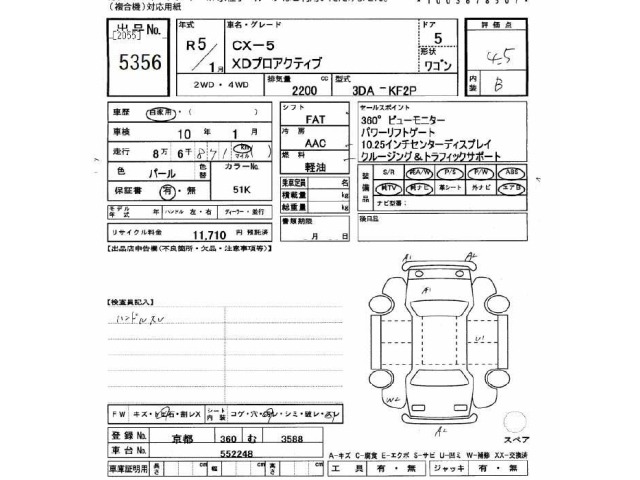 (複合機)対応用紙
出品No.
[2055]
5356
年式
R5/1月
車名・グレード
CX-5
XDプロアクティブ
2WD・4WD
排気量 2200 cc
型式 3DA-KF2P
ドア
5
形状
ワゴン
評価点
4.5
内装 B
車歴 自家用・( )
車検 10年 1月
走行 8万6千871 km マイル
色 パール
色替
カラーNo. 51K
保証書 有・無
モデル年式 年 ハンドル 左・右 ディーラー・並行
リサイクル料金 11,710 円 預託済
シフト
FAT
冷房
AAC
燃料
軽油
乗車定員 名
積載量 kg
総重量 kg
書類期限
月 日
セールスポイント
360°ビューモニター
パワーリフトゲート
10.25インチセンターディスプレイ
クルージング&トラフィックサポート
装備品
S/R 純A/W P/S P/W ABS
純TV 純ナビ 革シート 外ナビ エアB
ナビ型番:
後日品
【出品店申告欄(不良箇所・欠品・注意事項等)】
【検査員記入】
ハンドルスレ
A1 A2
A1
U1
W2
A2
スペア
FW キズ・飛石・割レX
シート内装 コゲ・穴・汚レ・シミ・破レ・スレ
登録No. 京都 360 む 3588
車台No. 552248
車庫証明用 長さ cm 幅 cm 高さ cm
A-キズ C-腐食 E-エクボ S-サビ U-凹ミ W-補修 XX-交換済
工具 有・無 ジャッキ 有・無